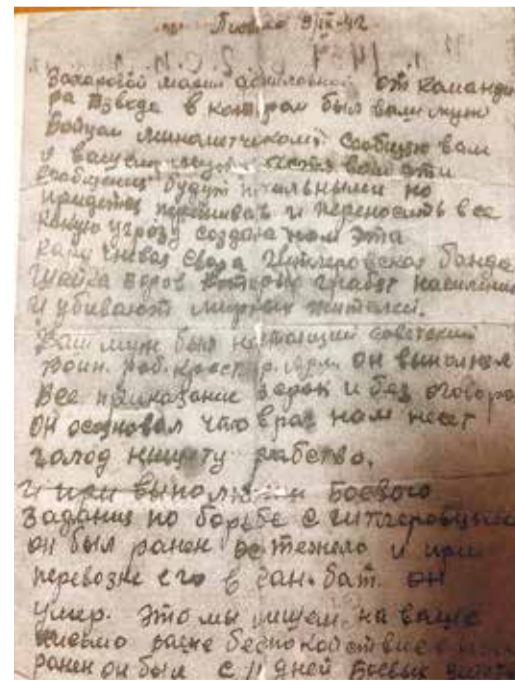 Письмо 9/IX-42
Захаровой Марии от команди
ра взвода в котором был ваш муж
Бойцом минометчиком. Сообщаю вам
о вашем муже хотя вам эти
сообщения будут печальными но
придется переживать и переносить все
какую угрозу создала нам эта
коричневая свора Гитлеровская банда
шайка воров которые грабят население
и убивают мирных жителей.
Ваш муж был настоящий советский
воин. раб. крест. он выполнял
все приказание зорок и без оговоро
он осозновал что враг нам несет
голод нищету рабство.
и при выполнении боевого
задания по борьбе с гитлеровцами
он был ранен тежело и при
перевозке его в сан. бат. он
умер. Это мы пишем на ваше
письмо ваше беспокойствие
ранен он был с 11 дней боевых